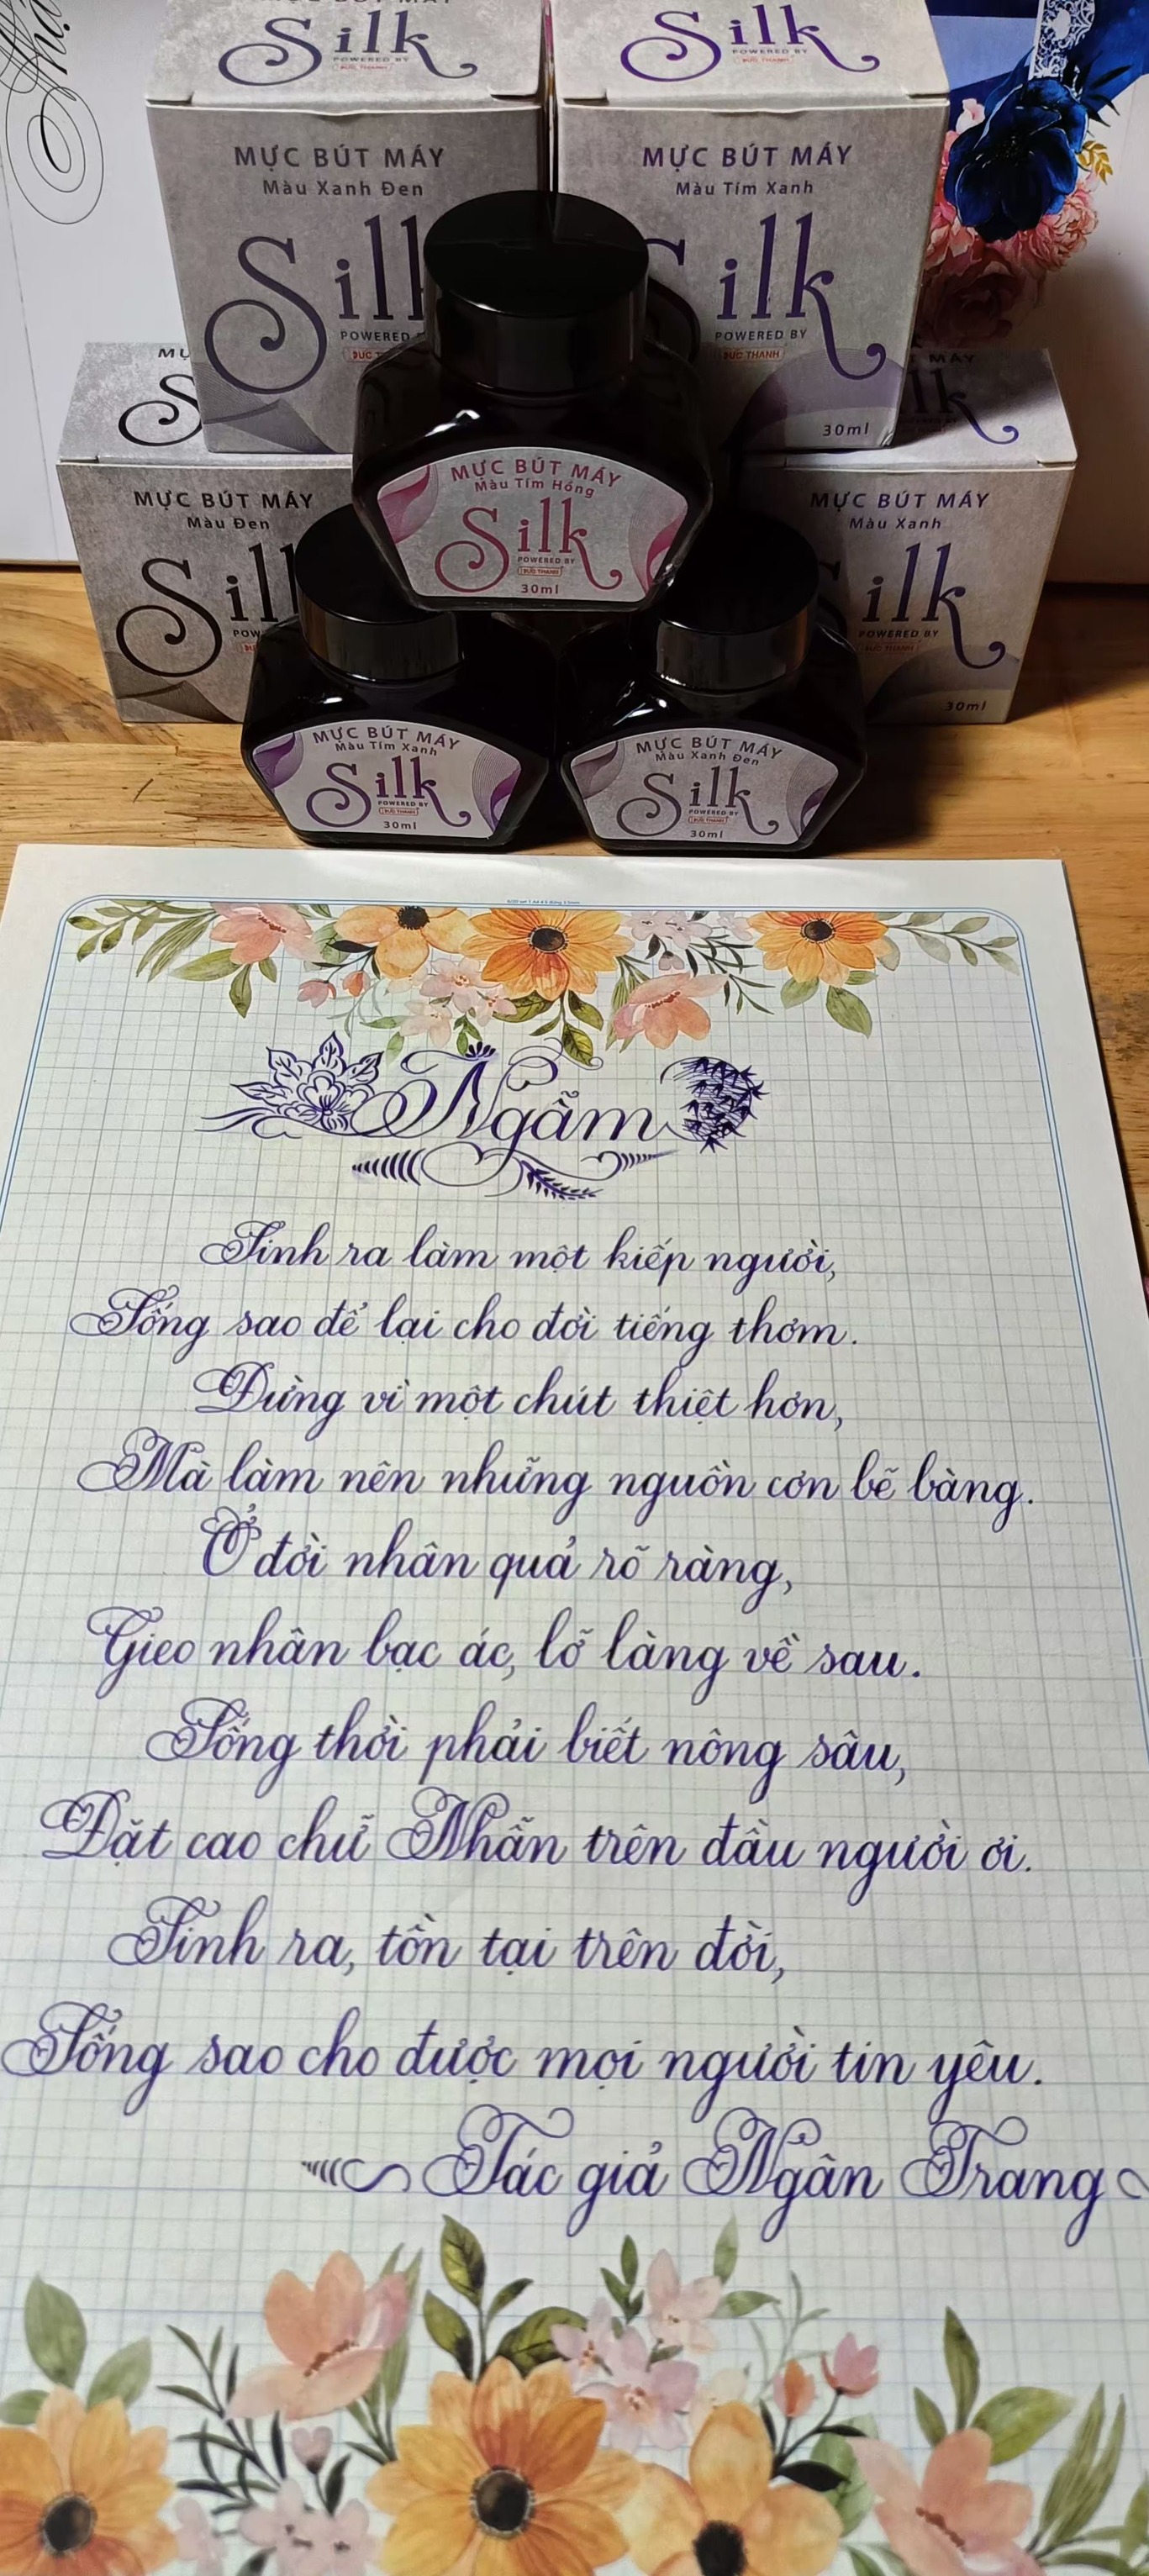 MỰC BÚT MÁY
Silk
POWERED BY
ĐỨC THANH
Silk
POWERED BY
ĐỨC THANH
MỰC BÚT MÁY
Màu Xanh Đen
Silk
POWERED
MỰC BÚT MÁY
Màu Tím Xanh
Silk
POWERED BY
ĐỨC THANH
30ml
MỰC BÚT MÁY
Màu Đen
Silk
MÁY
Silk
MỰC BÚT MÁY
Màu Xanh
Silk
POWERED BY
ĐỨC THANH
30ml
MỰC BÚT MÁY
Màu Tím Hồng
Silk
POWERED BY
ĐỨC THANH
30ml
MỰC BÚT MÁY
Màu Tím Xanh
Silk
POWERED BY
ĐỨC THANH
30ml
MỰC BÚT MÁY
Màu Xanh Đen
Silk
POWERED BY
ĐỨC THANH
30ml
Ngẫm
Sinh ra làm một kiếp người,
Sống sao để lại cho đời tiếng thơm.
Đừng vì một chút thiệt hơn,
Mà làm nên những nguồn cơn bẽ bàng.
Ở đời nhân quả rõ ràng,
Gieo nhân bạc ác, lỡ làng về sau.
Sống thời phải biết nông sâu,
Đặt cao chữ Nhẫn trên đầu người ơi.
Sinh ra, tồn tại trên đời,
Sống sao cho được mọi người tin yêu.
Tác giả Ngân Trang